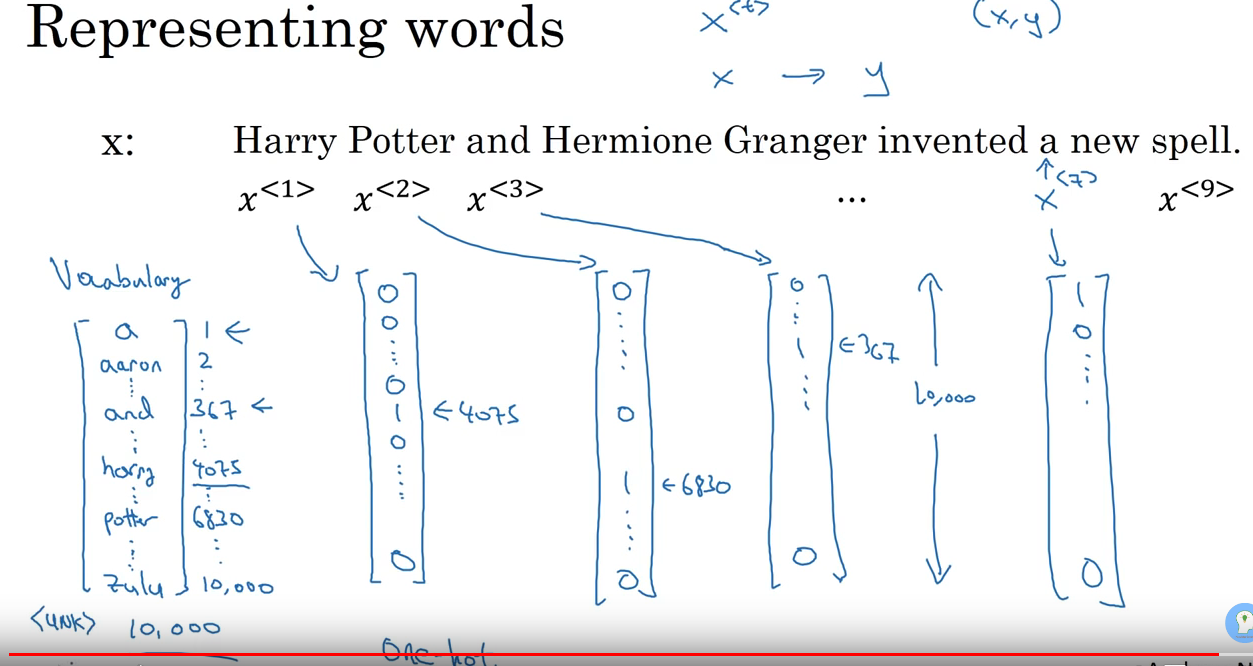 Representing words
x<t>
(x,y)
x → y
x: Harry Potter and Hermione Granger invented a new spell.
x<1> x<2> x<3> ... x<7> x<9>
Vocabulary
a 1 ←
aaron 2
⋮ ⋮
and 367 ←
⋮ ⋮
harry 4075
⋮ ⋮
potter 6830
⋮ ⋮
zulu 10,000
<UNK> 10,000
0
0
⋮
0
1 ← 4075
0
⋮
0
0
⋮
0
1 ← 6830
⋮
0
0
⋮
1 ← 367
⋮
0
10,000
1
0
⋮
0
One-hot